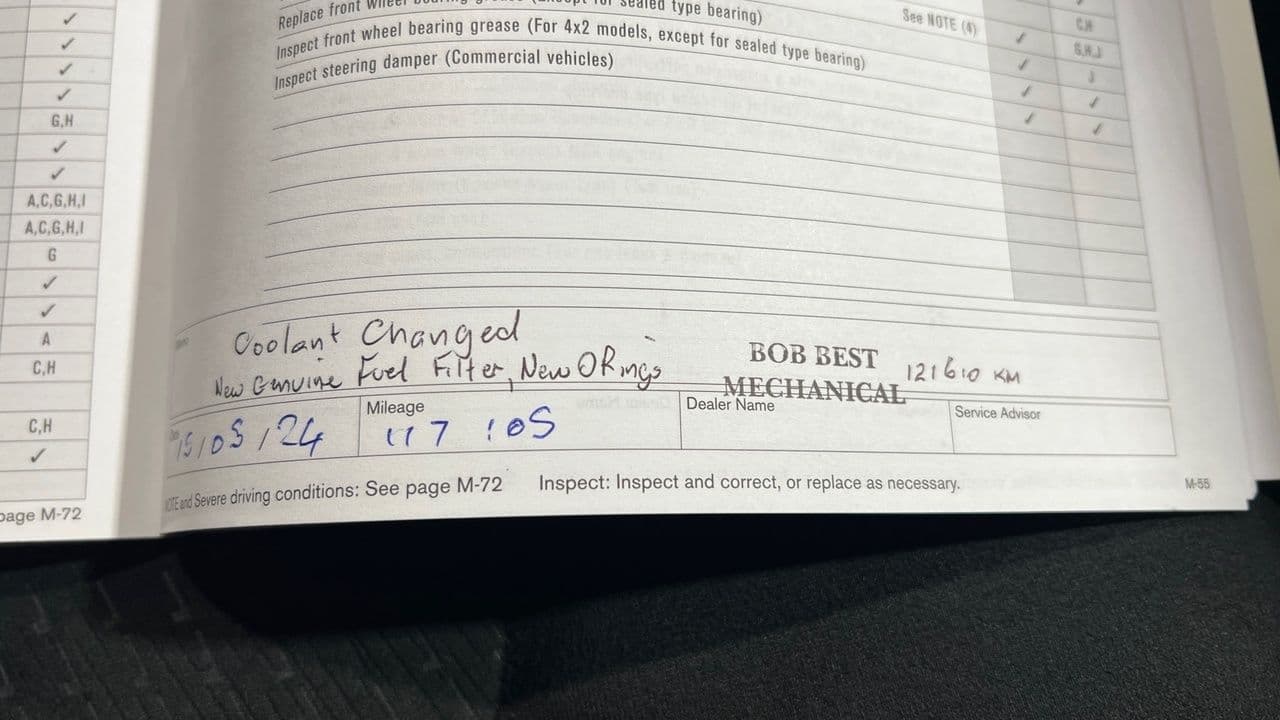 ✓
✓
✓
✓
G,H
✓
✓
A,C,G,H,I
A,C,G,H,I
G
✓
✓
A
C,H
C,H
✓
page M-72
Replace front wheel type bearing)
See NOTE (4) ✓ C,H
Inspect front wheel bearing grease (For 4x2 models, except for sealed type bearing) ✓ G,H,J
Inspect steering damper (Commercial vehicles) ✓ J
✓ ✓
✓
Coolant Changed
New Genuine Fuel Filter, New O Rings
BOB BEST
MECHANICAL
121610 KM
15/05/24
Mileage
117 105
Dealer Name
Service Advisor
NOTE and Severe driving conditions: See page M-72 Inspect: Inspect and correct, or replace as necessary.
M-55